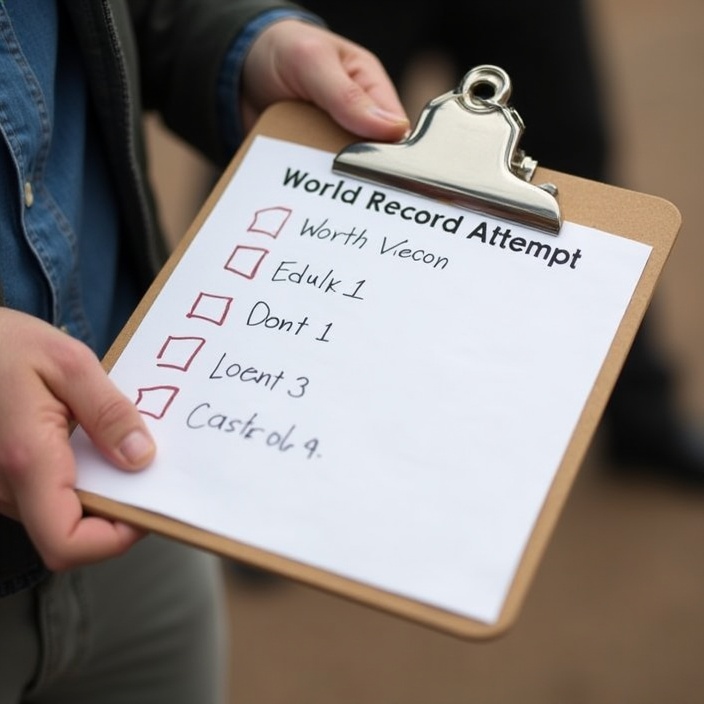 World Record Attempt
Worth Viecon
Edulk 1
Dont 1
Loent 3
Castrol 9.